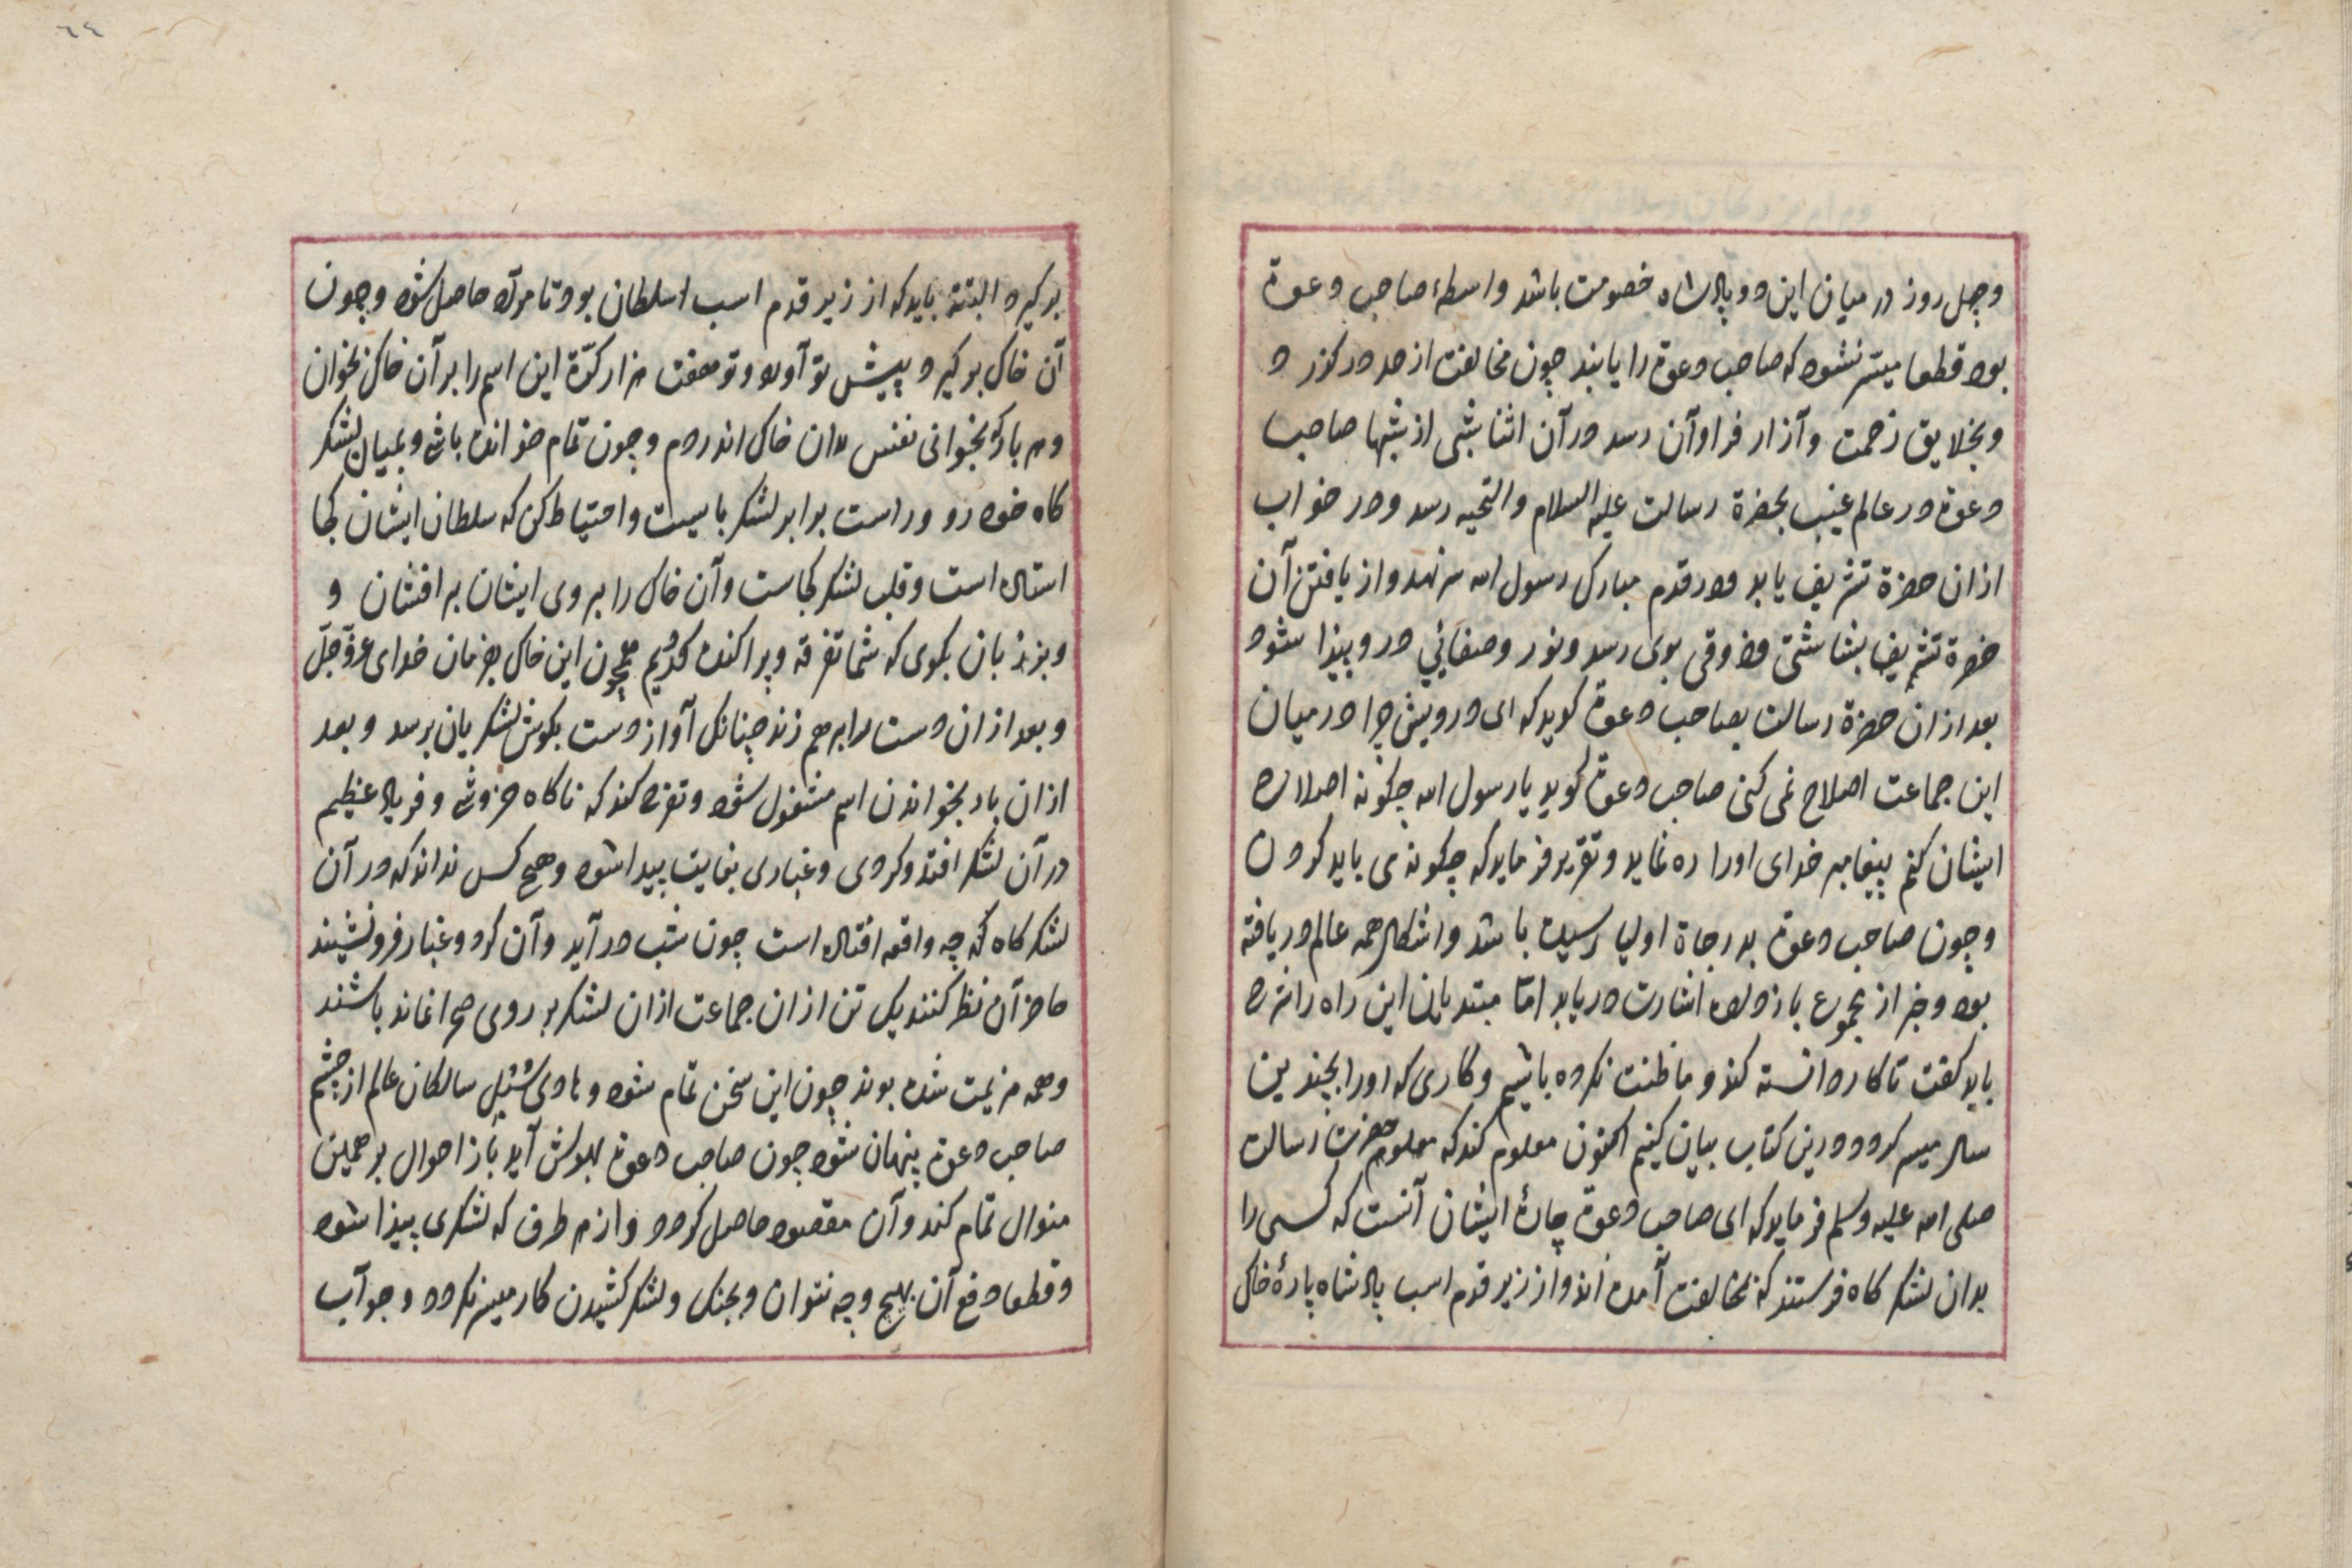 وچل روز در میان این دو پادشاه خصومت باشد واسطهٔ صاحب دعوة
بود قطعا میسر نشود که صاحب دعوة را یابند چون مخالفت از حد درکذر د
وبخلایق زحمت وآزار فراوآن رسد در آن اثنا شبی از شبها صاحب
دعوة در عالم غیب بحضرة رسالت علیه السلام والتحیه رسد ودر خواب
ازان حضرة تشریف یابد ودر قدم مبارک رسول الله سر نهد واز یافتن آن
حضرة تشریف بشاشتی وذوقی بوی رسد ونور وصفائی در وپیذا شود
بعد ازان حضرة رسالت بصاحب دعوة کوید که ای درویش چرا در میان
این جماعت اصلاح نمی کنی صاحب دعوة کوید یا رسول الله چکونه اصلاح
ایشان کنم پیغامبر خدای اورا ره نماید وتقریر فرماید که چکونه می باید کردن
وچون صاحب دعوة بدرجاة اولیا رسیده باشد واشکال همه عالم دریافته
بود وخبر از مجموع بازداده اشارت دریابد امّا مبتدیان این راه را شرح
باید کفت تا کار دانسته کند وما ظنت نکرده باشیم وکاری که اورا بچندین
سال میسر کردد درین کتاب بیان کنیم اکنون معلوم کند که معلوم حضرت رسالت
صلی الله علیه وسلم فرماید که ای صاحب دعوة چارهٔ ایشان آنست که کسی را
بدان لشکر کاه فرستند که مخالفت آمده اند واز زیر قدم اسب پادشاه پارهٔ خاک
٦٤
برکیرد البتّه باید که از زیر قدم اسب سلطان بود تا مراد حاصل شود وچون
آن خاک برکیرد وپیش تو آورد وتو هفت هزار کرّة این اسم را بر آن خاک بخوان
وهر بار که بخوانی نفس بدان خاک اندر دم وچون تمام خوانده باشی وبمیان لشکر
کاه خود رو وراست برابر لشکر بایست واحتیاط کن که سلطان ایشان کجا
استاده است وقلب لشکر کجاست وآن خاک را بروی ایشان بر افشان و
وبزبان بکوی که شما تفرقه وپراکنده کردیم همچون این خاک بفرمان خدای عزّوجلّ
وبعد ازان دست را برهم زند چنانک آواز دست بکوش لشکریان برسد وبعد
ازان باز بخواندن اسم مشغول شود وتفرج کند که ناکاه خروشی وفریاد عظیم
در آن لشکر افتد وکردی وغباری بغایت پیدا شود وهیچ کس نداند که در آن
لشکر کاه که چه واقعه افتاده است چون شب در آید وآن کرد وغبار فرو نشیند
حاضر آن نظر کنند یک تن ازان جماعت ازان لشکر بر روی صحرا نمانده باشند
وهمه هزیمت شده بوند چون این سخن تمام شود وهادی سُبُل سالکان عالم از چشم
صاحب دعوة پنهان شود چون صاحب دعوة بهوش آید باز احوال بر همین
منوال تمام کند وآن مقصود حاصل کردد واز هر طرف که لشکری پیذا شود
وقطعا دفع آن بهیچ وجه نتوان وبجنک ولشکر کشیدن کار میسر نکردد وجوآب